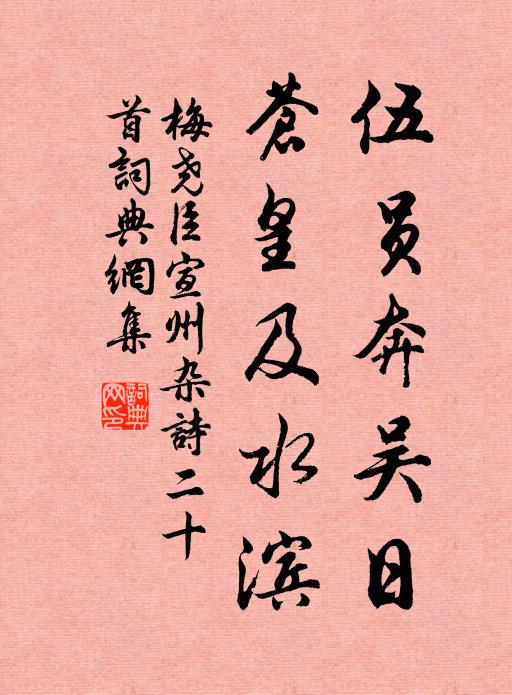 伍员奔吴日
蒼皇及水滨
梅尧臣宣州杂詩二十
首詞典網集
詞典
网印